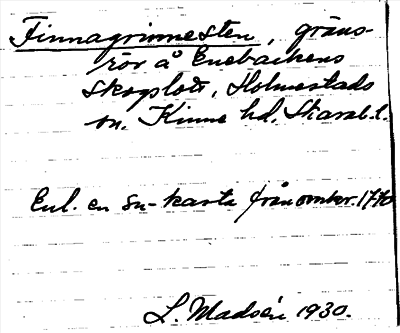 Finnagrinnesten, gräns-
rör å Enebackens
skogslott, Holmestads
sn. Kinne hd. Skarab. l.
Enl. en sn-karta från omkr. 1770
L. Madsén 1930.